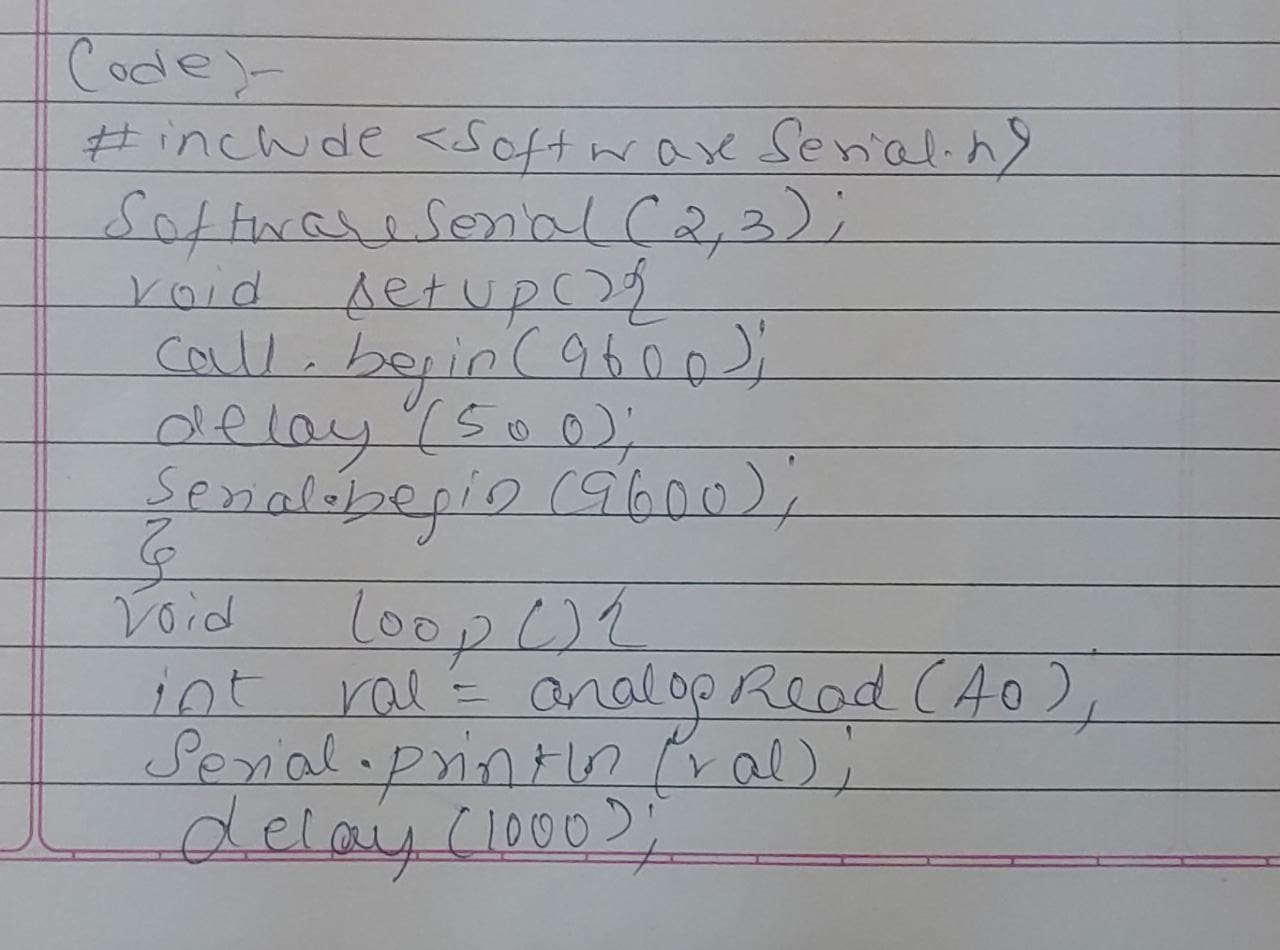 Code:-
#include <SoftwareSerial.h>
SoftwareSerial(2,3);
void setup(){
call.begin(9600);
delay(500);
Serial.begin(9600);
}
void loop(){
int val = analogRead(A0);
Serial.println(val);
delay(1000);